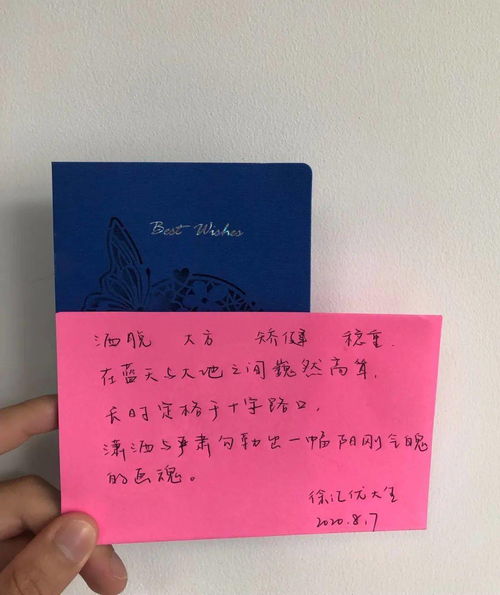 Best Wishes
洒脱 大方 矫健 稳重.
在蓝天与大地之间巍然高耸,
长时定格于十字路口,
潇洒与严肃勾勒出一幅阳刚气魄
的画魂。
徐汇优大生
2020.8.7